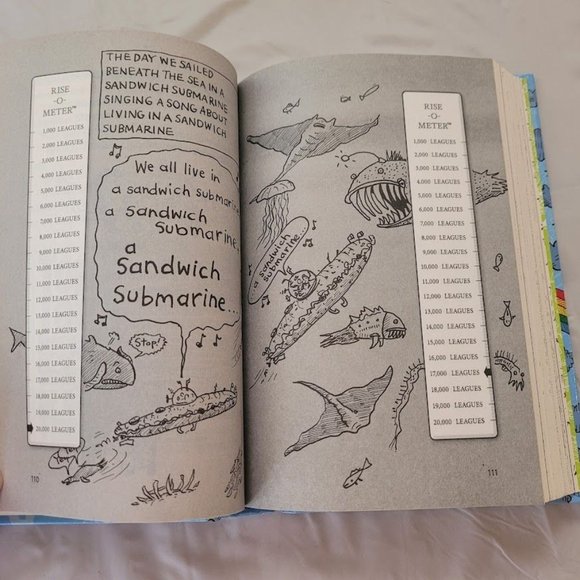 RISE
-O-
METER™
1,000 LEAGUES
2,000 LEAGUES
3,000 LEAGUES
4,000 LEAGUES
5,000 LEAGUES
6,000 LEAGUES
7,000 LEAGUES
8,000 LEAGUES
9,000 LEAGUES
10,000 LEAGUES
11,000 LEAGUES
12,000 LEAGUES
13,000 LEAGUES
14,000 LEAGUES
15,000 LEAGUES
16,000 LEAGUES
17,000 LEAGUES
18,000 LEAGUES
19,000 LEAGUES
20,000 LEAGUES
THE DAY WE SAILED
BENEATH THE SEA IN A
SANDWICH SUBMARINE
SINGING A SONG ABOUT
LIVING IN A SANDWICH
SUBMARINE
We all live in
a sandwich submarine
a Sandwich
Submarine,
a
Sandwich
Submarine...
Stop!
110
a sandwich
submarine...
RISE
-O-
METER™
1,000 LEAGUES
2,000 LEAGUES
3,000 LEAGUES
4,000 LEAGUES
5,000 LEAGUES
6,000 LEAGUES
7,000 LEAGUES
8,000 LEAGUES
9,000 LEAGUES
10,000 LEAGUES
11,000 LEAGUES
12,000 LEAGUES
13,000 LEAGUES
14,000 LEAGUES
15,000 LEAGUES
16,000 LEAGUES
17,000 LEAGUES
18,000 LEAGUES
19,000 LEAGUES
20,000 LEAGUES
111